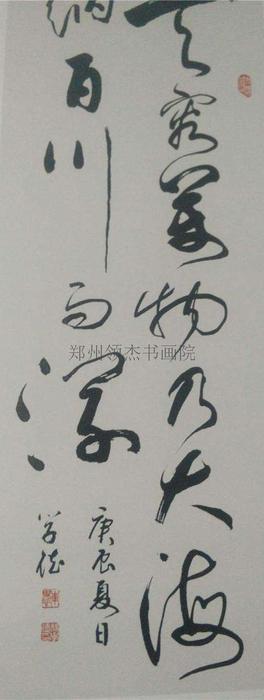 天容万物乃大海
纳百川而深
庚辰夏日
学信
郑州领杰书画院